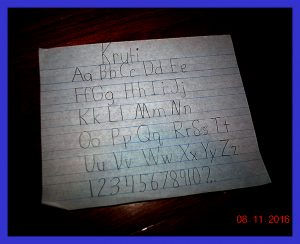 Kruti
Aa Bb Cc Dd Ee
Ff Gg Hh Ii Jj
Kk Ll Mm Nn
Oo Pp Qq Rr Ss Tt
Uu Vv Ww Xx Yy Zz
12345678910
08 11 2016